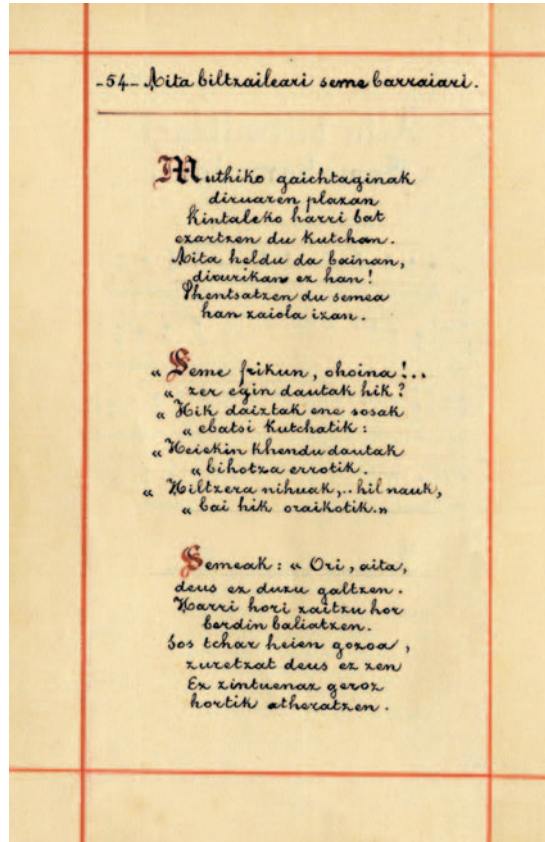 -54- Aita biltzaileari seme barraiari.
Muthiko gaichtaginak
diruaren plazan
Kintaleko harri bat
ezartzen du kutchan.
Aita heldu da bainan,
dirurikan ez han!
Phentsatzen du semea
han zaiola izan.
« Seme frikun, ohoina!..
« zer egin dautak hik?
« Hik daiztak ene sosak
« ebatsi kutchatik:
« Heiekin khendu dautak
« bihotza errotik.
« Hiltzera nihuak,.. hil nauk,
« bai hik oraikotik.»
Semeak: « Ori, aita,
deus ez duzu galtzen.
Harri hori zaitzu hor
berdin baliatzen.
Sos tchar heien gozoa,
zuretzat deus ez zen
Ez zintuenaz geroz
hortik atheratzen.